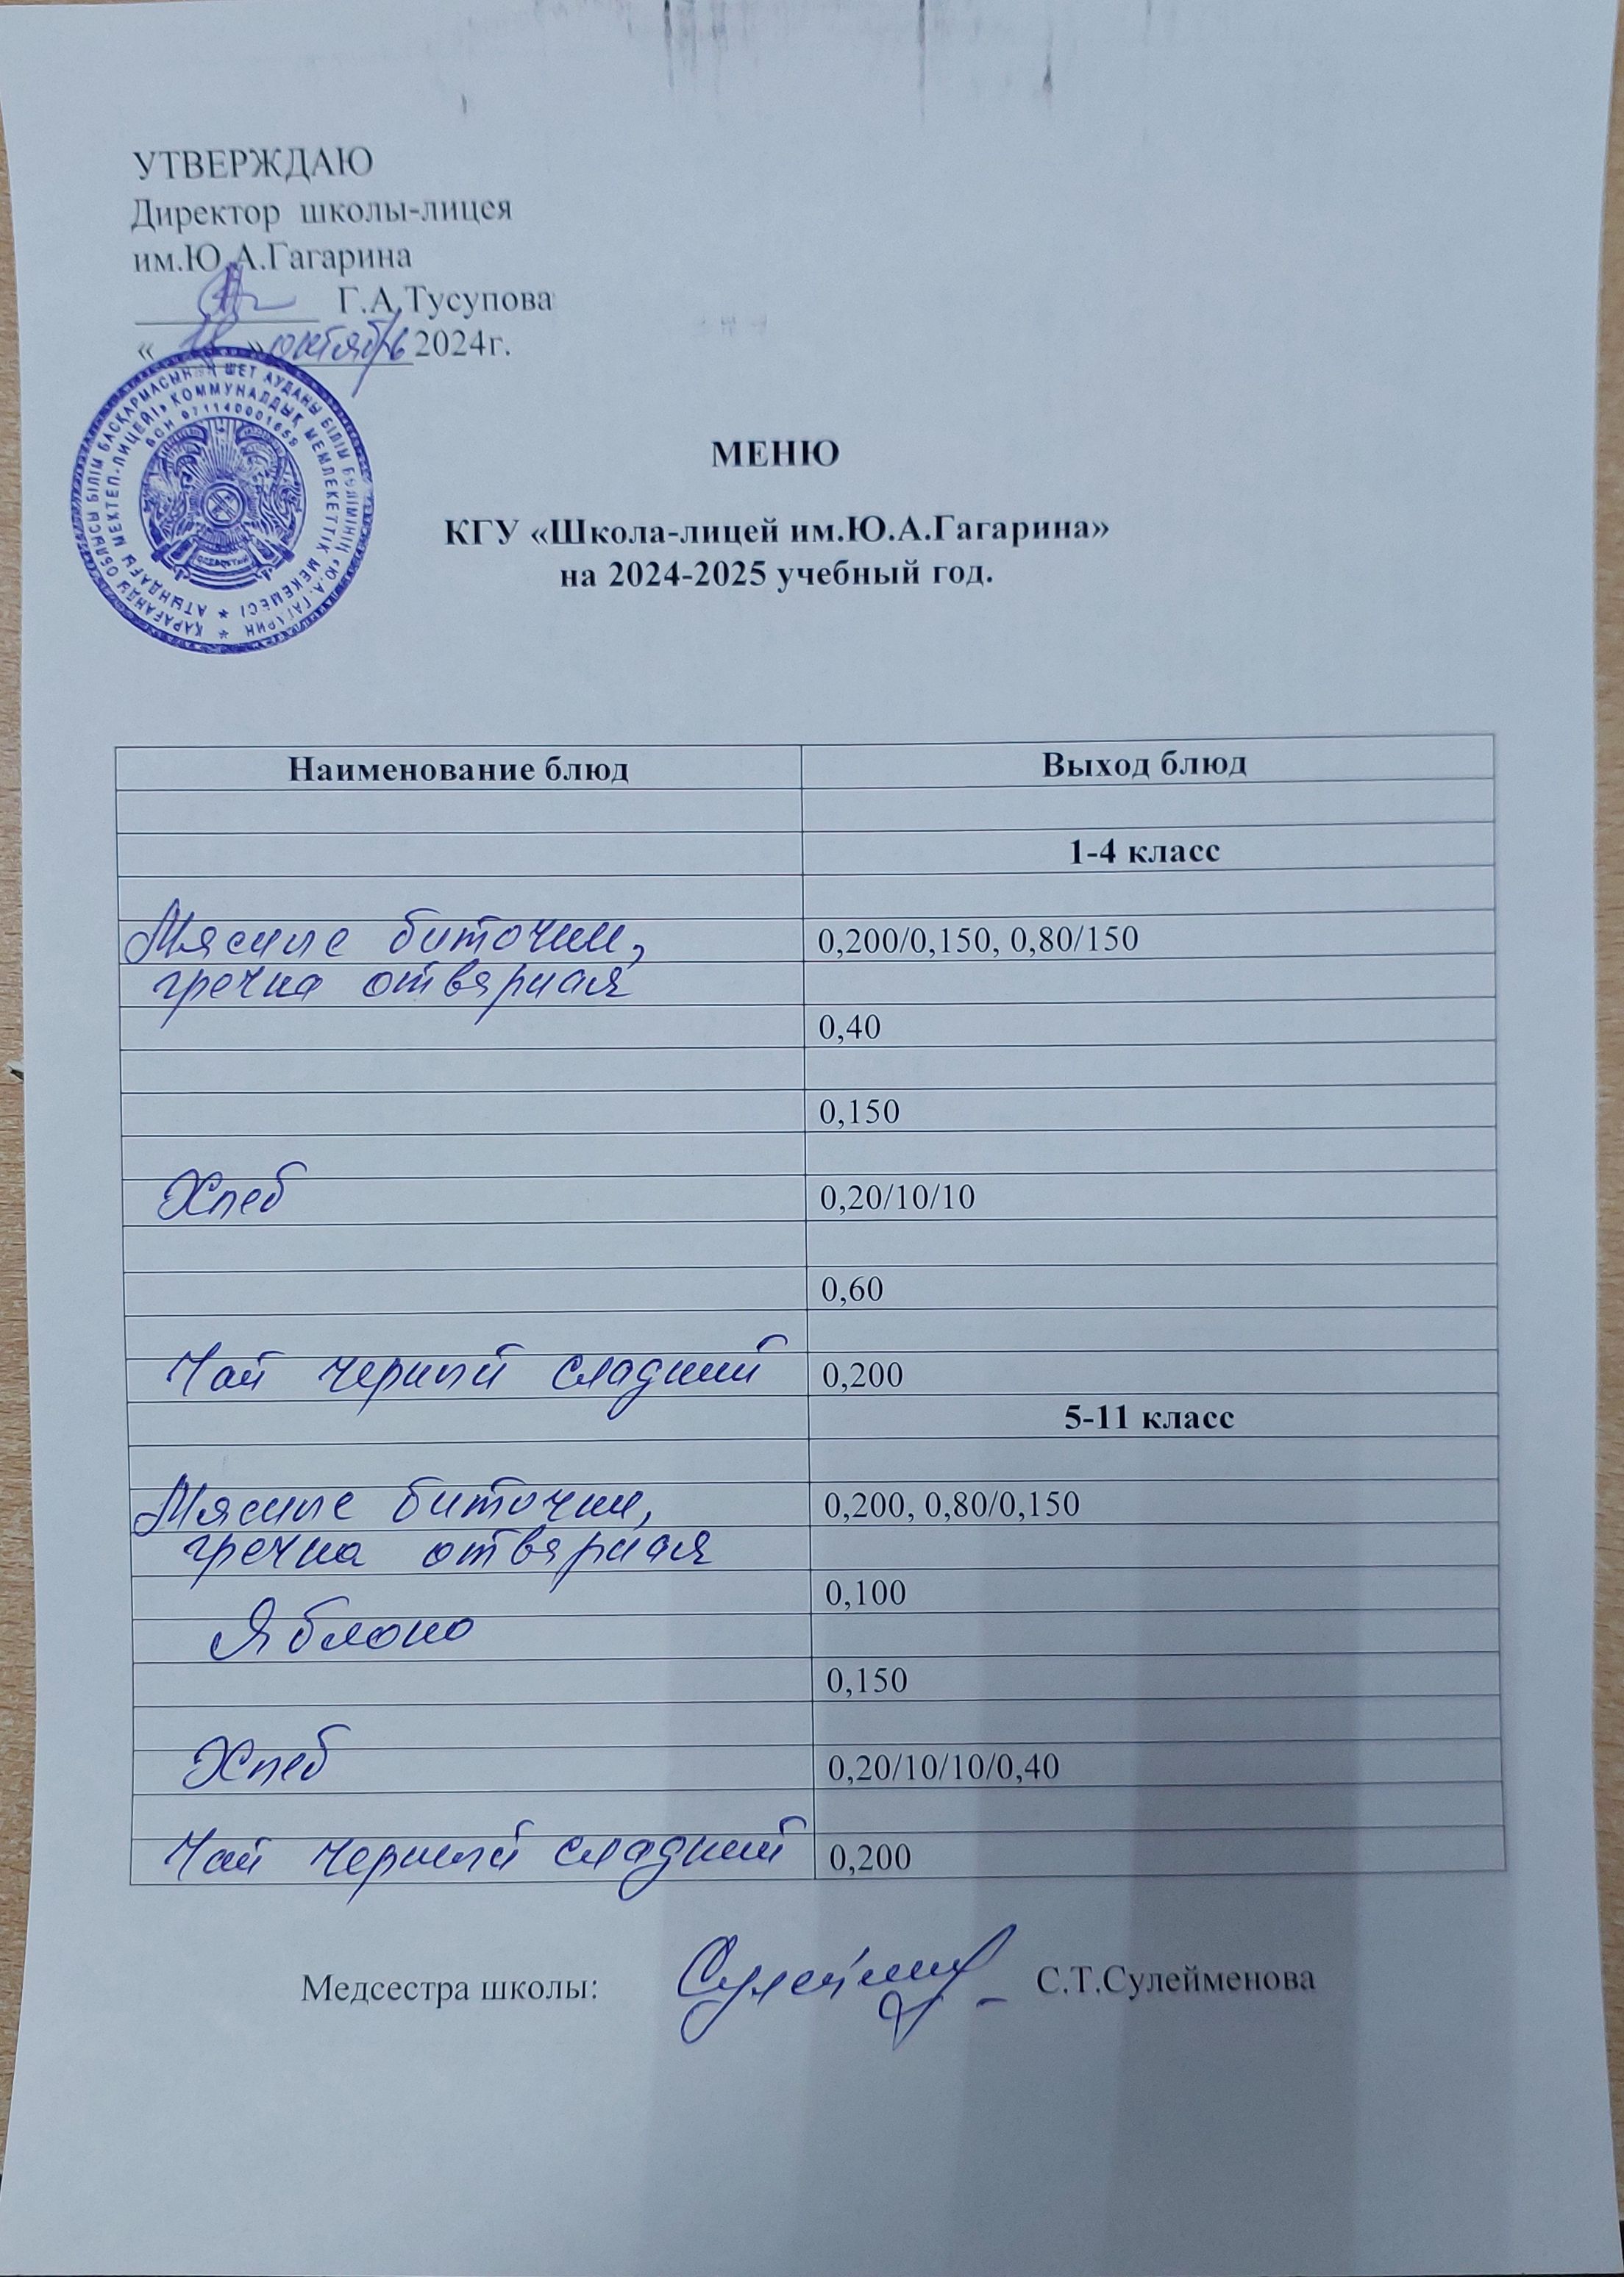 УТВЕРЖДАЮ
Директор школы-лицея
им.Ю.А.Гагарина
Г.А.Тусупова
« » октябрь 2024г.
ҚАРАҒАНДЫ ОБЛЫСЫ БІЛІМ БАСҚАРМАСЫНЫҢ ШЕТ АУДАНЫ БІЛІМ БӨЛІМІНІҢ «Ю.А.ГАГАРИН
АТЫНДАҒЫ МЕКТЕП-ЛИЦЕЙІ» КОММУНАЛДЫҚ МЕМЛЕКЕТТІК МЕКЕМЕСІ
БСН 071140001659
МЕНЮ
КГУ «Школа-лицей им.Ю.А.Гагарина»
на 2024-2025 учебный год.
Наименование блюд Выход блюд
1-4 класс
Мясные биточки, 0,200/0,150, 0,80/150
гречка отварная
0,40
0,150
Хлеб 0,20/10/10
0,60
Чай черный сладкий 0,200
5-11 класс
Мясные биточки, 0,200, 0,80/0,150
гречка отварная
0,100
Яблоко
0,150
Хлеб 0,20/10/10/0,40
Чай черный сладкий 0,200
Медсестра школы: С.Т.Сулейменова